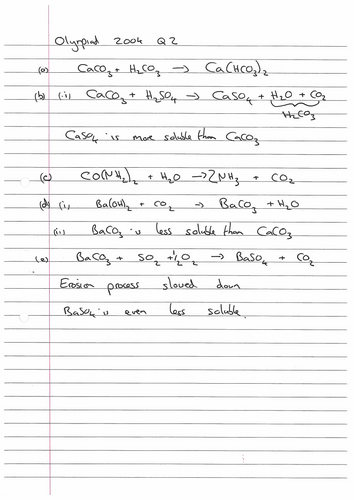 Olympiad 2004 Q2
(a) CaCO₃ + H₂CO₃ → Ca(HCO₃)₂
(b) (i) CaCO₃ + H₂SO₄ → CaSO₄ + H₂O + CO₂
H₂CO₃
CaSO₄ is more soluble than CaCO₃
(c) CO(NH₂)₂ + H₂O → 2NH₃ + CO₂
(d) (i) Ba(OH)₂ + CO₂ → BaCO₃ + H₂O
(ii) BaCO₃ is less soluble than CaCO₃
(e) BaCO₃ + SO₂ + ½O₂ → BaSO₄ + CO₂
Erosion process slowed down
BaSO₄ is even less soluble.